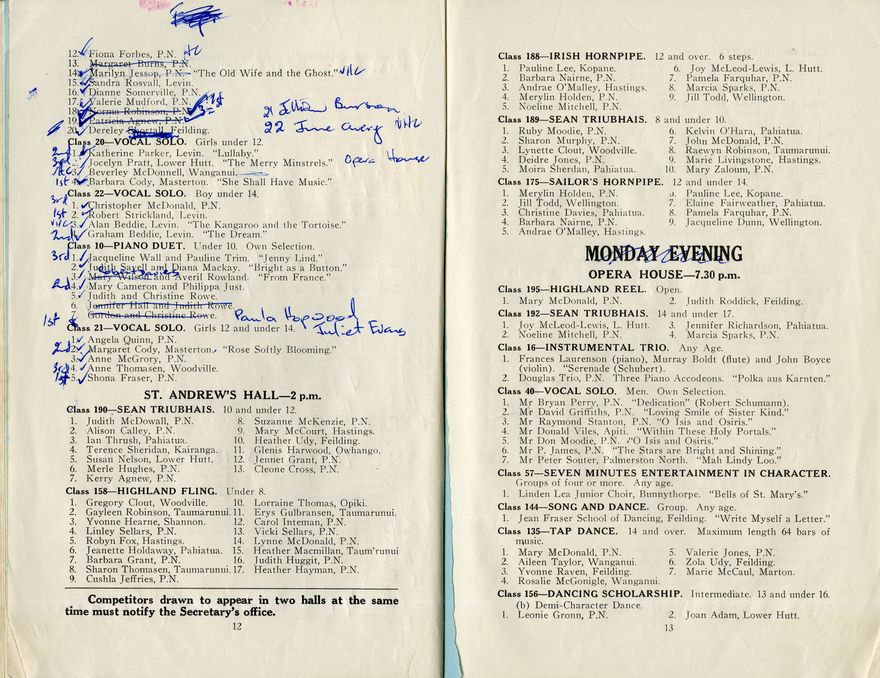 12. Fiona Forbes, P.N. HC
13. Margaret Burns, P.N.
14. Marilyn Jessop, P.N. "The Old Wife and the Ghost." VHC
15. Sandra Rosvall, Levin.
16. Dianne Somerville, P.N.
17. Valerie Mudford, P.N.
18. Norma Robinson, P.N.
19. Patricia Agnew, P.N.
20. Dereley Shortall, Feilding.
21 Jillian Burson
22 June Avery VHC
Class 20—VOCAL SOLO. Girls under 12.
2nd 1. Katherine Parker, Levin. "Lullaby."
3rd 2. Jocelyn Pratt, Lower Hutt. "The Merry Minstrels." Opera House
HC 3. Beverley McDonnell, Wanganui.
1st 4. Barbara Cody, Masterton. "She Shall Have Music."
Class 22—VOCAL SOLO. Boy under 14.
3rd 1. Christopher McDonald, P.N.
1st 2. Robert Strickland, Levin.
VHC 3. Alan Beddie, Levin. "The Kangaroo and the Tortoise."
2nd 4. Graham Beddie, Levin. "The Dream."
Class 10—PIANO DUET. Under 10. Own Selection.
3rd 1. Jacqueline Wall and Pauline Trim. "Jenny Lind."
2. Judith Sayell and Diana Mackay. "Bright as a Button."
3. Mary Wilson and Averil Rowland. "From France."
2nd 4. Mary Cameron and Philippa Just.
5. Judith and Christine Rowe.
6. Jennifer Hall and Judith Rowe.
7. Gordon and Christine Rowe.
1st Paula Hopwood
Juliet Evans
Class 21—VOCAL SOLO. Girls 12 and under 14.
1. Angela Quinn, P.N.
2nd 2. Margaret Cody, Masterton. "Rose Softly Blooming."
3. Anne McGrory, P.N.
3rd 4. Anne Thomasen, Woodville.
1st 5. Shona Fraser, P.N.
ST. ANDREW'S HALL—2 p.m.
Class 190—SEAN TRIUBHAIS. 10 and under 12.
1. Judith McDowall, P.N. 8. Suzanne McKenzie, P.N.
2. Alison Calley, P.N. 9. Mary McCourt, Hastings.
3. Ian Thrush, Pahiatua. 10. Heather Udy, Feilding.
4. Terence Sheridan, Kairanga. 11. Glenis Harwood, Owhango.
5. Susan Nelson, Lower Hutt. 12. Jennet Grant, P.N.
6. Merle Hughes, P.N. 13. Cleone Cross, P.N.
7. Kerry Agnew, P.N.
Class 158—HIGHLAND FLING. Under 8.
1. Gregory Clout, Woodville. 10. Lorraine Thomas, Opiki.
2. Gayleen Robinson, Taumarunui. 11. Erys Gulbransen, Taumarunui.
3. Yvonne Hearne, Shannon. 12. Carol Inteman, P.N.
4. Linley Sellars, P.N. 13. Vicki Sellars, P.N.
5. Robyn Fox, Hastings. 14. Lynne McDonald, P.N.
6. Jeanette Holdaway, Pahiatua. 15. Heather Macmillan, Taum'runui
7. Barbara Grant, P.N. 16. Judith Huggit, P.N.
8. Sharon Thomasen, Taumarunui. 17. Heather Hayman, P.N.
9. Cushla Jeffries, P.N.
Competitors drawn to appear in two halls at the same
time must notify the Secretary's office.
12
Class 188—IRISH HORNPIPE. 12 and over. 6 steps.
1. Pauline Lee, Kopane. 6. Joy McLeod-Lewis, L. Hutt.
2. Barbara Nairne, P.N. 7. Pamela Farquhar, P.N.
3. Andrae O'Malley, Hastings. 8. Marcia Sparks, P.N.
4. Merylin Holden, P.N. 9. Jill Todd, Wellington.
5. Noeline Mitchell, P.N.
Class 189—SEAN TRIUBHAIS. 8 and under 10.
1. Ruby Moodie, P.N. 6. Kelvin O'Hara, Pahiatua.
2. Sharon Murphy, P.N. 7. John McDonald, P.N.
3. Lynette Clout, Woodville. 8. Raewyn Robinson, Taumarunui.
4. Deidre Jones, P.N. 9. Marie Livingstone, Hastings.
5. Moira Sherdan, Pahiatua. 10. Mary Zaloum, P.N.
Class 175—SAILOR'S HORNPIPE. 12 and under 14.
1. Merylin Holden, P.N. 6. Pauline Lee, Kopane.
2. Jill Todd, Wellington. 7. Elaine Fairweather, Pahiatua.
3. Christine Davies, Pahiatua. 8. Pamela Farquhar, P.N.
4. Barbara Nairne, P.N. 9. Jacqueline Dunn, Wellington.
5. Andrae O'Malley, Hastings.
MONDAY EVENING
OPERA HOUSE—7.30 p.m.
Class 195—HIGHLAND REEL. Open.
1. Mary McDonald, P.N. 2. Judith Roddick, Feilding.
Class 192—SEAN TRIUBHAIS. 14 and under 17.
1. Joy McLeod-Lewis, L. Hutt. 3. Jennifer Richardson, Pahiatua.
2. Noeline Mitchell, P.N. 4. Marcia Sparks, P.N.
Class 16—INSTRUMENTAL TRIO. Any Age.
1. Frances Laurenson (piano), Murray Boldt (flute) and John Boyce
(violin). "Serenade (Schubert).
2. Douglas Trio, P.N. Three Piano Accodeons. "Polka aus Karnten."
Class 40—VOCAL SOLO. Men. Own Selection.
1. Mr Bryan Perry, P.N. "Dedication" (Robert Schumann).
2. Mr David Griffiths, P.N. "Loving Smile of Sister Kind."
3. Mr Raymond Stanton, P.N. "O Isis and Osiris."
4. Mr Donald Viles, Apiti. "Within These Holy Portals."
5. Mr Don Moodie, P.N. "O Isis and Osiris."
6. Mr P. James, P.N. "The Stars are Bright and Shining."
7. Mr Peter Souter, Palmerston North. "Mah Lindy Loo."
Class 57—SEVEN MINUTES ENTERTAINMENT IN CHARACTER.
Groups of four or more. Any age.
1. Linden Lea Junior Choir, Bunnythorpe. "Bells of St. Mary's."
Class 144—SONG AND DANCE. Group. Any age.
1. Jean Fraser School of Dancing, Feilding. "Write Myself a Letter."
Class 135—TAP DANCE. 14 and over. Maximum length 64 bars of
music.
1. Mary McDonald, P.N. 5. Valerie Jones, P.N.
2. Aileen Taylor, Wanganui. 6. Zola Udy, Feilding.
3. Yvonne Raven, Feilding. 7. Marie McCaul, Marton.
4. Rosalie McGonigle, Wanganui.
Class 156—DANCING SCHOLARSHIP. Intermediate. 13 and under 16.
(b) Demi-Character Dance.
1. Leonie Gronn, P.N. 2. Joan Adam, Lower Hutt.
13